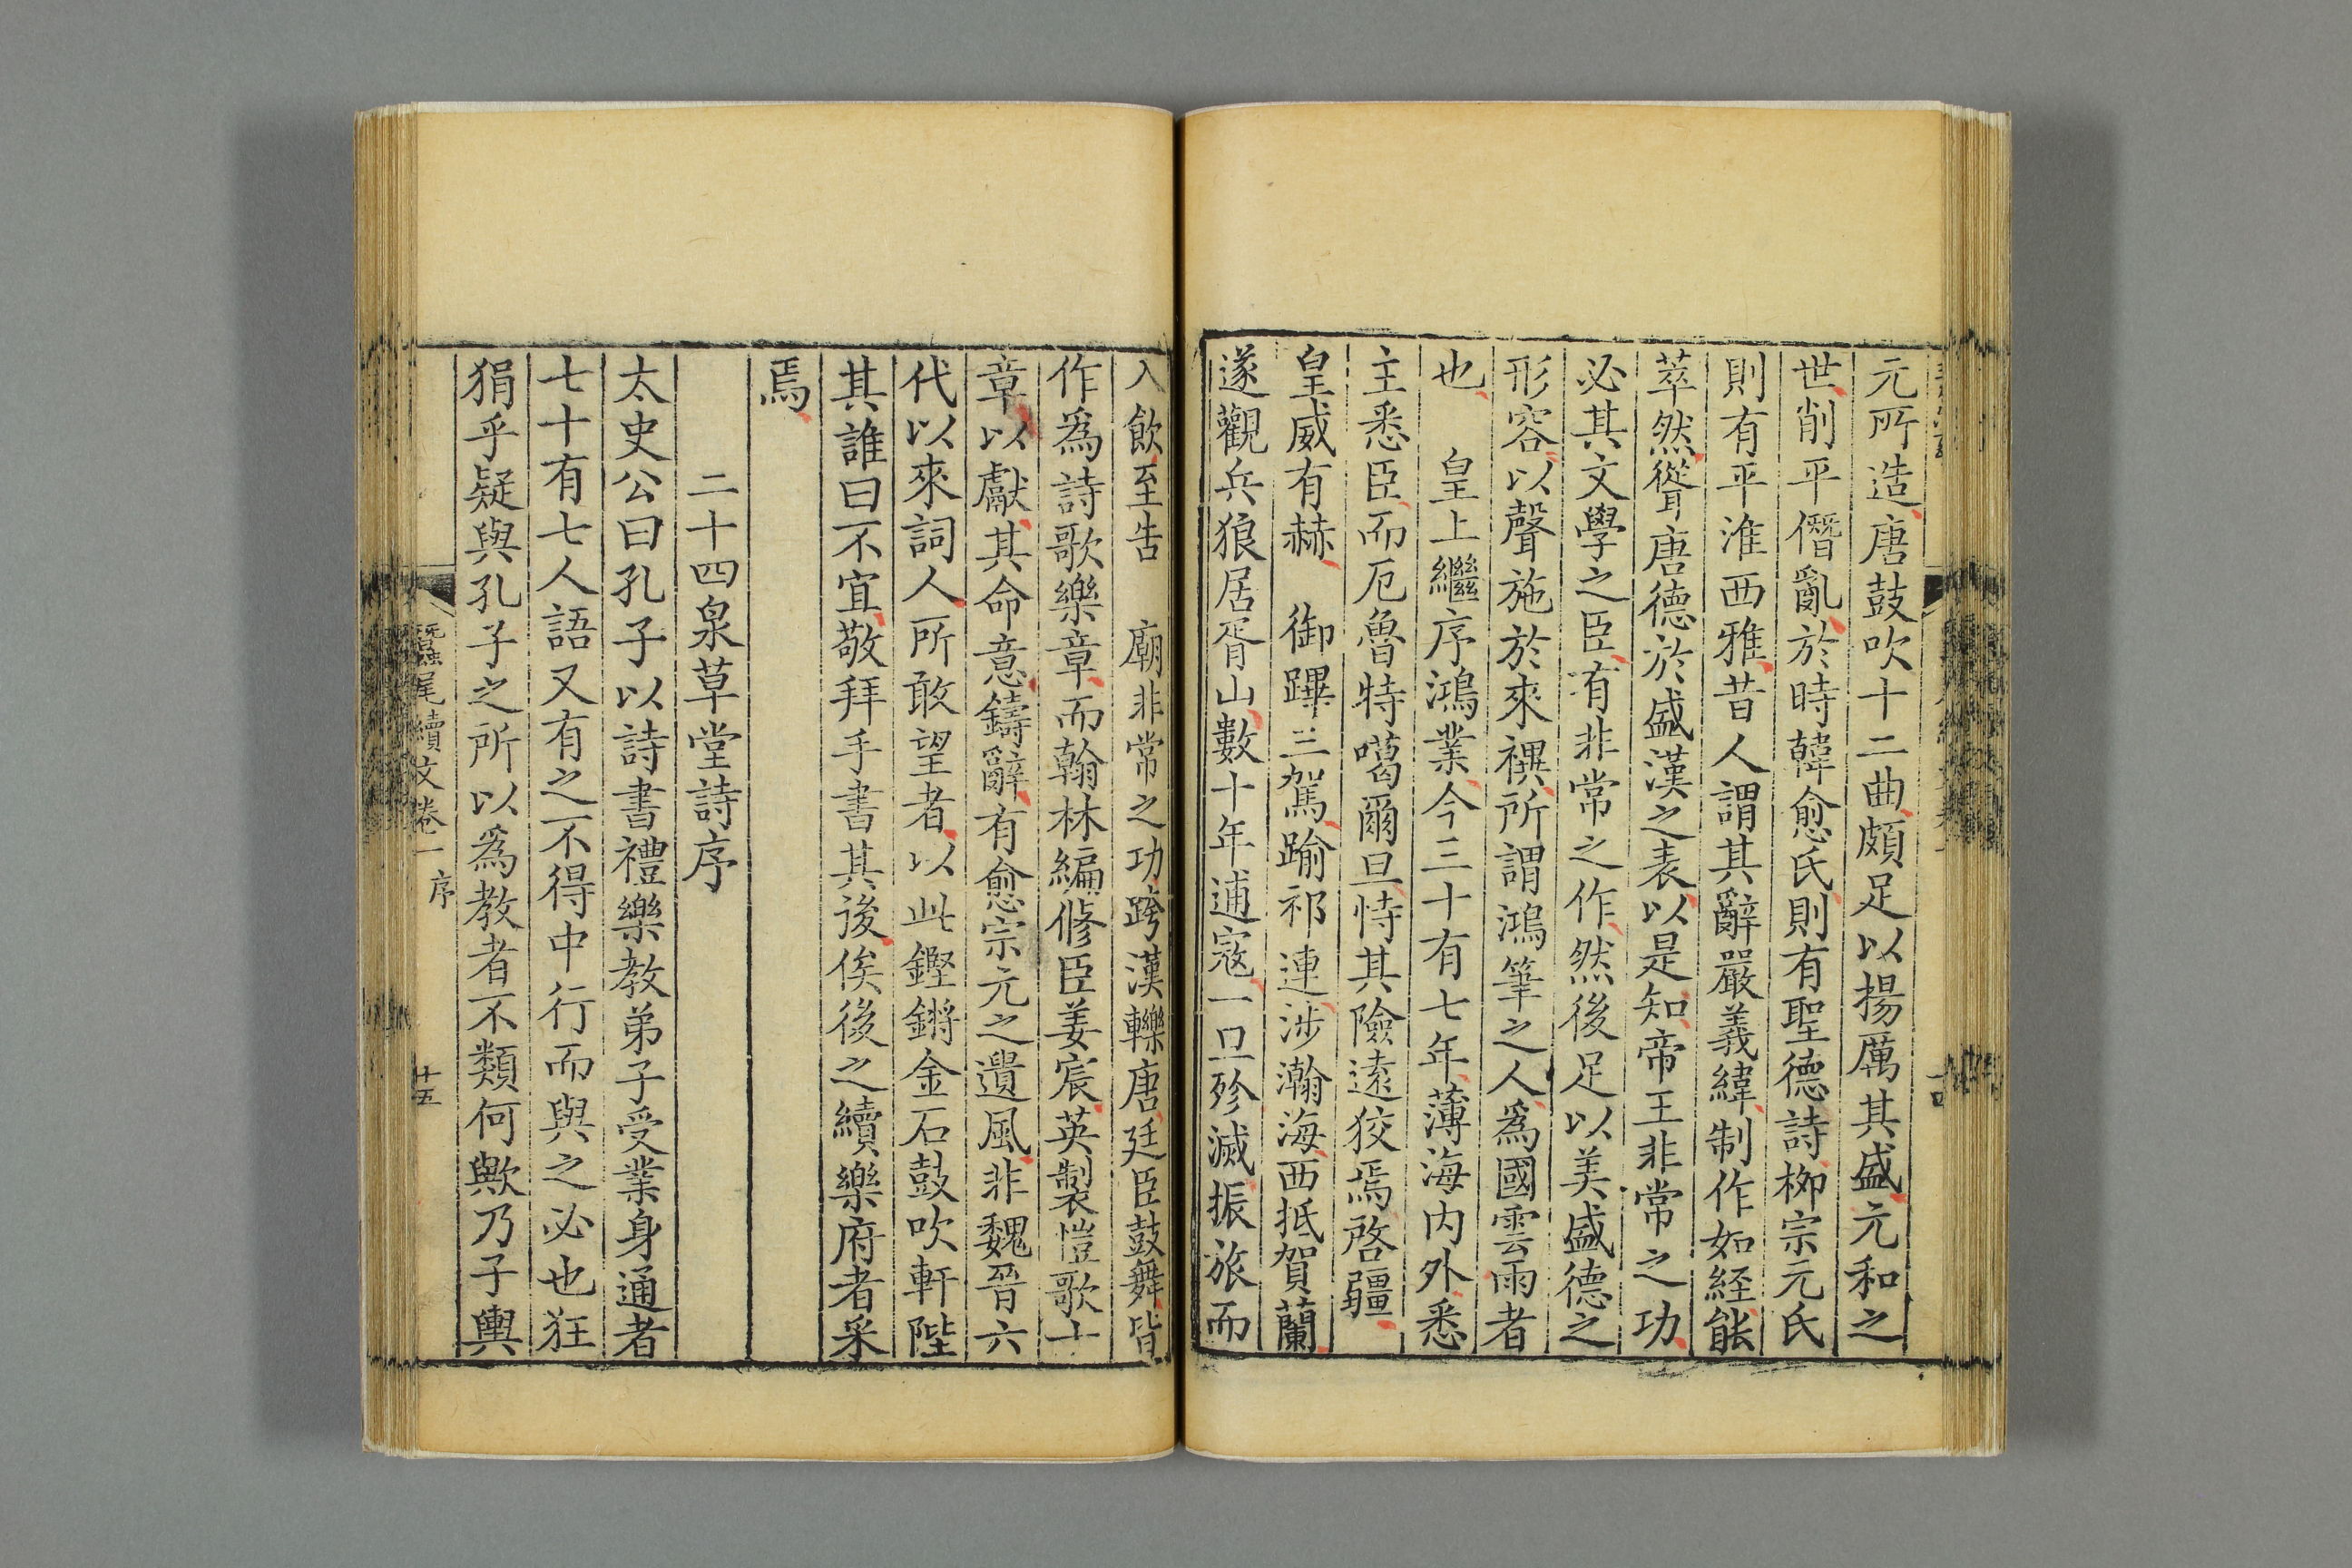 元所造唐鼓吹十二曲頗足以揚厲其盛元和之
世削平僭亂於時韓愈氏則有聖德詩栁宗元氏
則有平淮西雅昔人謂其辭嚴義緯制作如經能
萃然聳唐德於盛漢之表以是知帝王非常之功
必其文學之臣有非常之作然後足以美盛德之
形容以聲施於來禩所謂鴻筆之人爲國雲雨者
也　皇上繼序鴻業今三十有七年薄海内外悉
主悉臣而厄魯特噶爾旦恃其險遠狡焉啓疆
皇威有赫　御蹕三駕踰祁連涉瀚海西抵賀蘭
遂觀兵狼居胥山數十年逋寇一旦殄滅振旅而
入飲至告　廟非常之功跨漢轢唐廷臣鼓舞皆
作爲詩歌樂章而翰林編修臣姜宸英製愷歌十
章以獻其命意鑄辭有愈宗元之遺風非魏晉六
代以來詞人所敢望者以此鏗鏘金石鼓吹軒陛
其誰曰不宜敬拜手書其後俟後之續樂府者采
焉
二十四泉草堂詩序
太史公曰孔子以詩書禮樂教弟子受業身通者
七十有七人語又有之不得中行而與之必也狂
狷乎疑與孔子之所以爲教者不類何歟乃子輿
蠶尾續文卷一　序
十五